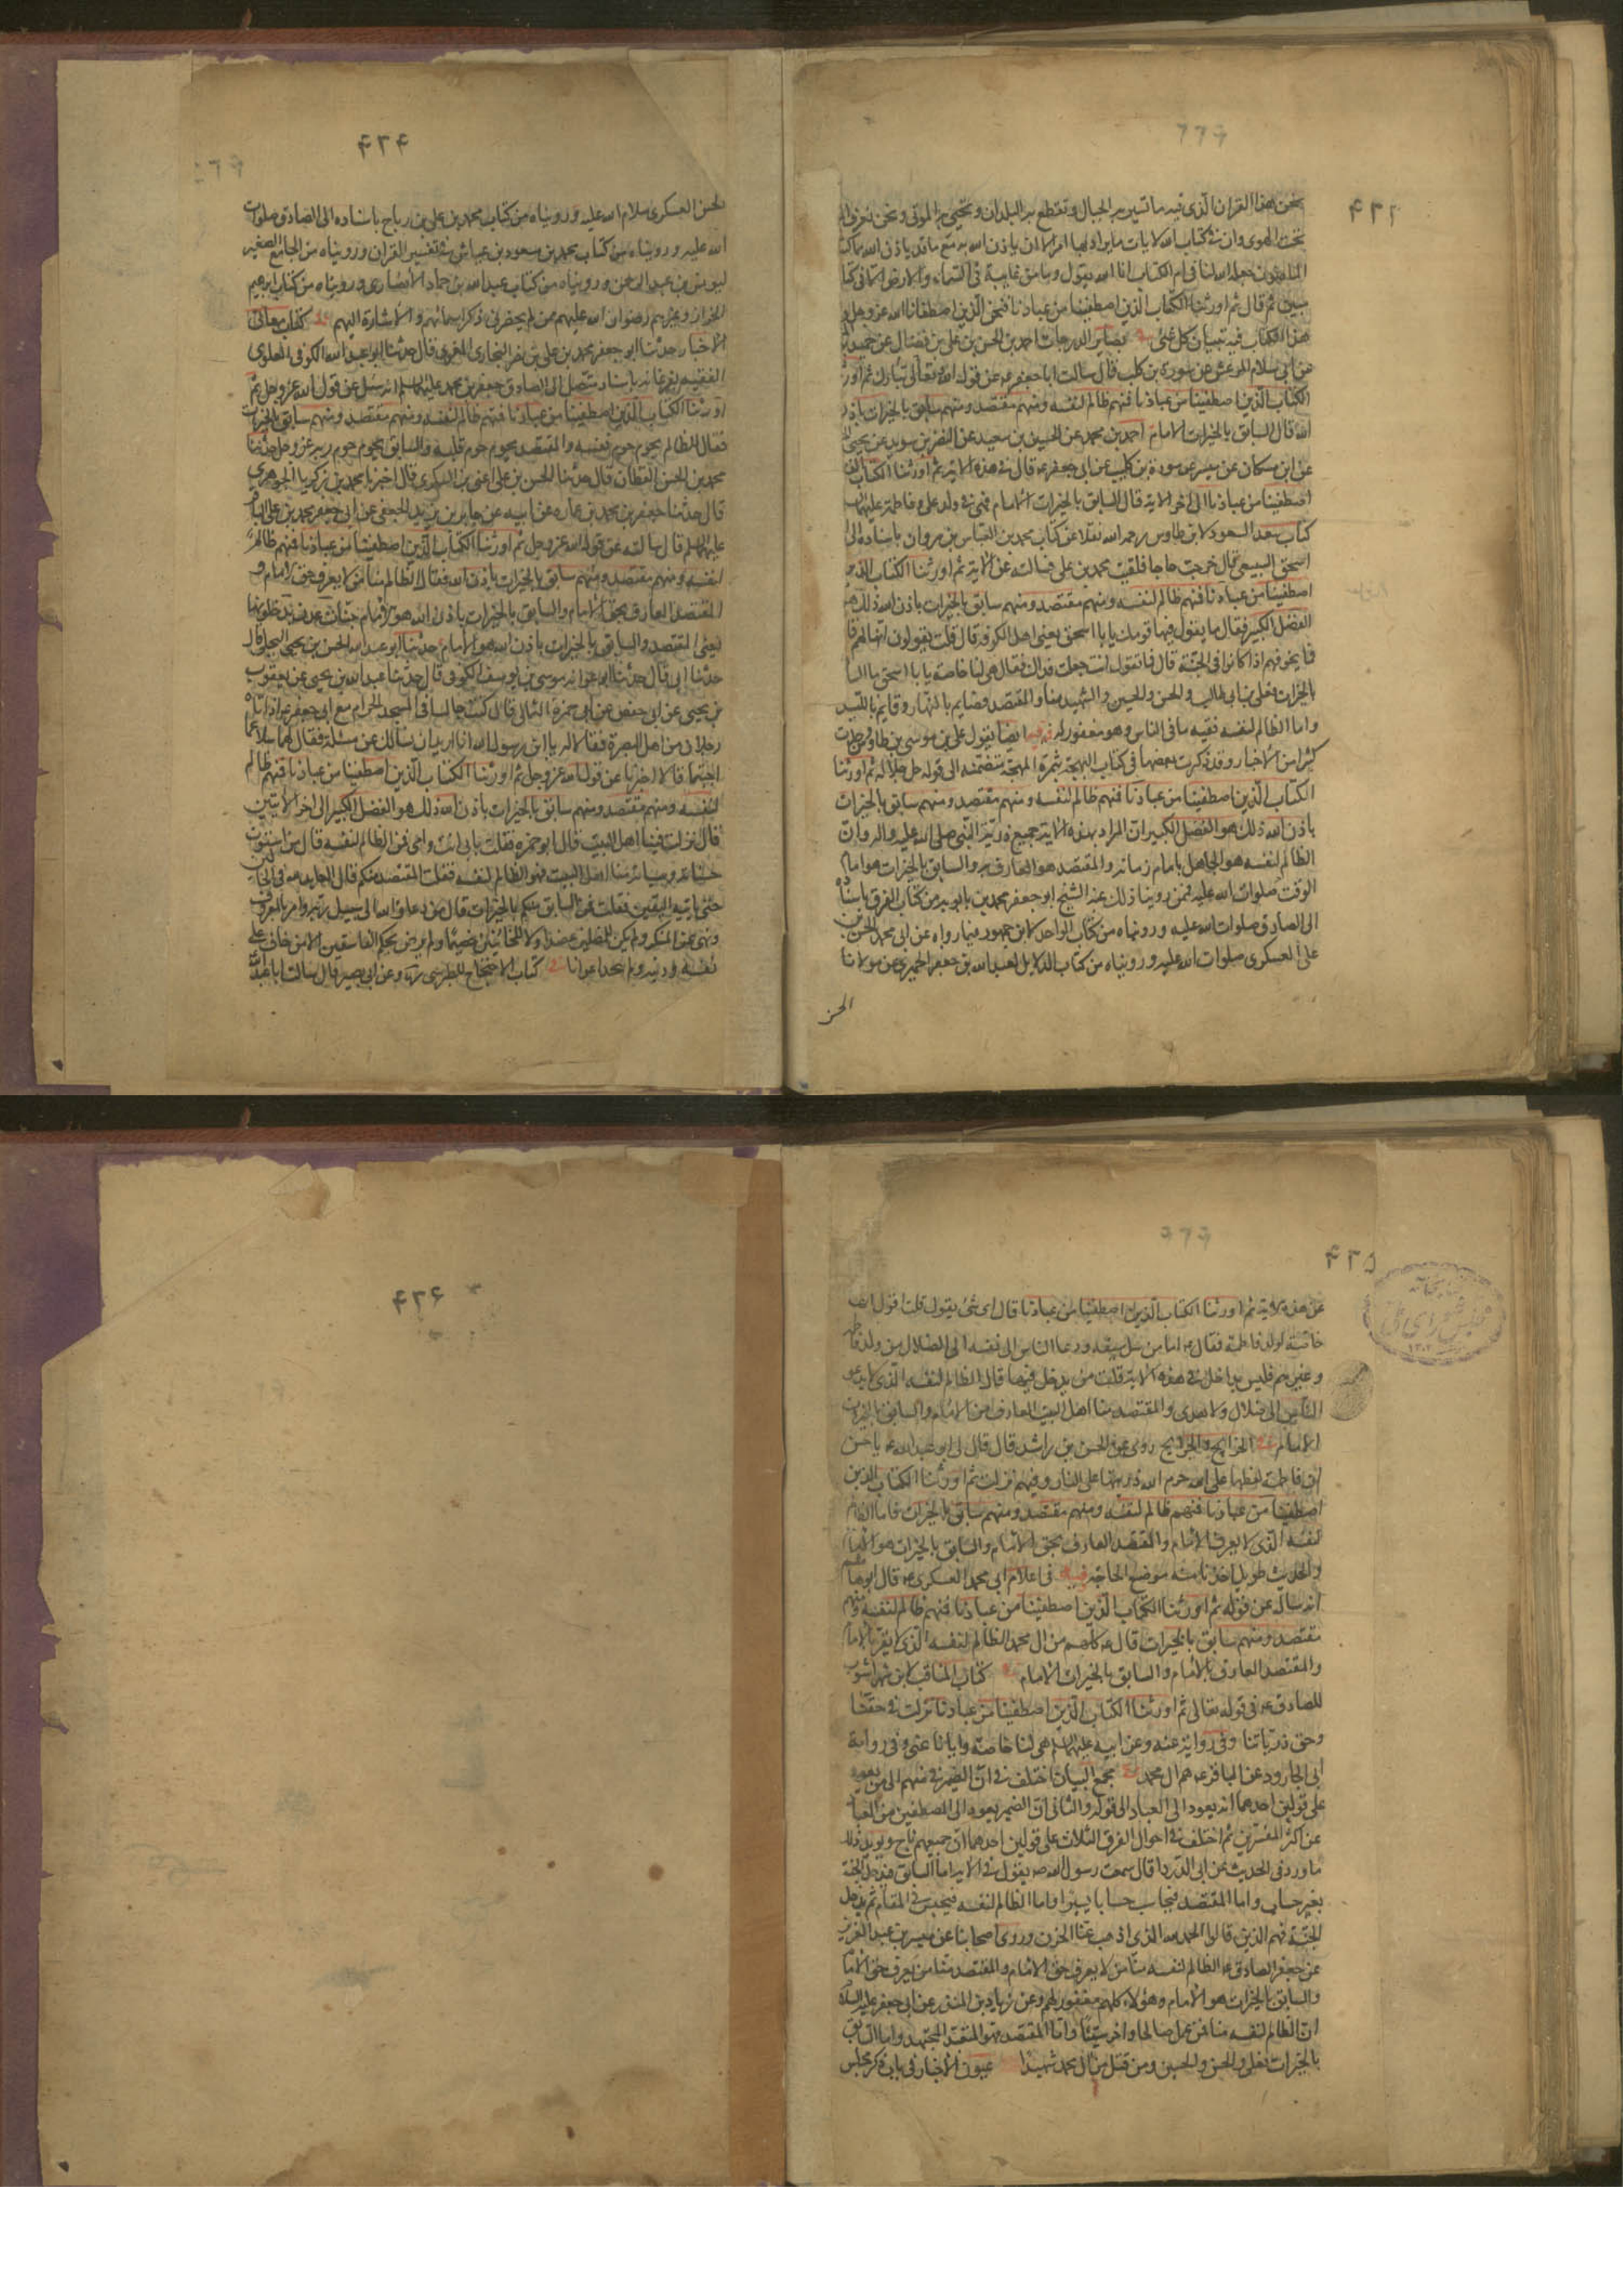 ۴۲۳
نحن هذا القران الذی فیه ما تسیر به الجبال وتقطع به البلدان وتحیی به الموتی ونحن نعرف الماء
تحت الهوی وان فی کتاب الله لایات ما یراد بها امر الا ان یاذن الله به مع ما قد یاذن الله مما کتبه
الماضون جعله الله لنا فی ام الکتاب ان الله یقول وما من غایبة فی السماء والارض الا فی کتاب
مبین ثم قال ثم اورثنا الکتاب الذین اصطفینا من عبادنا فنحن الذین اصطفانا الله عز وجل و
هذا الکتاب فیه تبیان کل شئ بصایر الدرجات احمد بن الحسن بن علی بن فضال عن حمید
عن ابی سلام المرعشی عن سورة بن کلیب قال سالت ابا جعفر ع عن قول الله تعالی تبارک ثم اورثنا
الکتاب الذین اصطفینا من عبادنا فمنهم ظالم لنفسه ومنهم مقتصد ومنهم سابق بالخیرات باذن
الله قال السابق بالخیرات الامام احمد بن محمد عن الحسین بن سعید عن النضر بن سوید عن یحیی
عن ابن مسکان عن میسر عن سورة بن کلیب عن ابی جعفر ع قال فی هذه الایة ثم اورثنا الکتاب الذین
اصطفینا من عبادنا الی اخر الایة قال السابق بالخیرات الامام فهی فی ولد علی وفاطمة علیهما
کتاب سعد السعود لابن طاوس رحمه الله نقلا عن کتاب محمد بن العباس بن مروان باسناده الی
اسحق السبیعی قال خرجت حاجا فلقیت محمد بن علی فسالته عن الایة ثم اورثنا الکتاب الذین
اصطفینا من عبادنا فمنهم ظالم لنفسه ومنهم مقتصد ومنهم سابق بالخیرات باذن الله ذلک هو
الفضل الکبیر فقال ما یقول فیها قومک یا با اسحق یعنی اهل الکوفة قال قلت یقولون انها لهم قال
فما یخوفهم اذا کانوا فی الجنة قال فما تقول انت جعلت فداک فقال هی لنا خاصة یا با اسحق اما السابق
بالخیرات فعلی بن ابی طالب والحسن والحسین والشهید منا والمقتصد فصایم بالنهار وقایم باللیل
واما الظالم لنفسه ففیه ما فی الناس وهو مغفور له وفیه ایضا یقول علی بن موسی بن طاوس وجدت
کثیرا من الاخبار وقد ذکرت بعضها فی کتاب البهجة بثمرة المهجة متضمنه الی قوله جل جلاله ثم اورثنا
الکتاب الذین اصطفینا من عبادنا فمنهم ظالم لنفسه ومنهم مقتصد ومنهم سابق بالخیرات
باذن الله ذلک هو الفضل الکبیر ان المراد بهذه الایة جمیع ذریة النبی صلی الله علیه واله وان
الظالم لنفسه هو الجاهل بامام زمانه والمقتصد هو العارف به والسابق بالخیرات هو امام
الوقت صلوات الله علیه فممن روینا ذلک عنه الشیخ ابو جعفر محمد بن بابویه من کتاب الفرق باسناده
الی الصادق صلوات الله علیه ورویناه من کتاب الواحد لابن جمهور فیما رواه عن ابی محمد الحسن بن
علی العسکری صلوات الله علیه ورویناه من کتاب الدلایل لعبد الله بن جعفر الحمیری عن مولانا
الحسن
۴۲۴
الحسن العسکری سلام الله علیه ورویناه من کتاب محمد بن علی بن رباح باسناده الی الصادق صلوات
الله علیه ورویناه من کتاب محمد بن مسعود بن عیاش فی تفسیر القران ورویناه من الجامع الصغیر
لیونس بن عبد الرحمن ورویناه من کتاب عبد الله بن حماد الانصاری ورویناه من کتاب ابرهیم
الخزاز وغیرهم رضوان الله علیهم ممن لم یحضرنی ذکر اسمائهم والاشارة الیهم کتاب معانی
الاخبار حدثنا ابو جعفر محمد بن علی بن نصر البخاری المقری قال حدثنا ابو عبد الله الکوفی العلوی
الفقیه بفرغانه باسناد متصل الی الصادق جعفر بن محمد علیهما السلم انه سئل عن قول الله عز وجل ثم
اورثنا الکتاب الذین اصطفینا من عبادنا فمنهم ظالم لنفسه ومنهم مقتصد ومنهم سابق بالخیرات
فقال الظالم یحوم حوم نفسه والمقتصد یحوم حوم قلبه والسابق یحوم حوم ربه عز وجل حدثنا
محمد بن الحسن القطان قال حدثنا الحسن بن علی اعنی بن السکری قال اخبرنا محمد بن زکریا الجوهری
قال حدثنا جعفر بن محمد بن عماره عن ابیه عن جابر بن یزید الجعفی عن ابی جعفر محمد بن علی الباقر
علیهما السلم قال سالته عن قول الله عز وجل ثم اورثنا الکتاب الذین اصطفینا من عبادنا فمنهم ظالم
لنفسه ومنهم مقتصد ومنهم سابق بالخیرات باذن الله فقال الظالم منا من لا یعرف حق الامام و
المقتصد العارف بحق الامام والسابق بالخیرات باذن الله هو الامام جنات عدن یدخلونها
یعنی المقتصد والسابق بالخیرات باذن الله هو الامام حدثنا ابو عبد الله الحسن بن یحیی البجلی قال
حدثنا ابی قال حدثنا ابو عوانه موسی بن یوسف الکوفی قال حدثنا عبد الله بن یحیی عن یعقوب
بن یحیی عن ابی حفص عن ابی حمزة الثمالی قال کنت جالسا فی المسجد الحرام مع ابی جعفر ع اذ اتاه
رجلان من اهل البصرة فقالا له یا ابن رسول الله انا نرید ان نسالک عن مسئلة فقال لهما سلا عما
احببتما قالا اخبرنا عن قول الله عز وجل ثم اورثنا الکتاب الذین اصطفینا من عبادنا فمنهم ظالم
لنفسه ومنهم مقتصد ومنهم سابق بالخیرات باذن الله ذلک هو الفضل الکبیر الی اخر الایتین
قال نزلت فینا اهل البیت قال ابو حمزه فقلت بابی انت وامی فمن الظالم لنفسه قال من استوت
حسناته وسیئاته منا اهل البیت فهو الظالم لنفسه فقلت من المقتصد منکم قال العابد لله فی الحالین
حتی یاتیه الیقین فقلت فمن السابق منکم بالخیرات قال من دعا والله الی سبیل ربه وامر بالمعروف
ونهی عن المنکر ولم یکن للمضلین عضدا ولا للخائنین خصیما ولم یرض بحکم الفاسقین الا من خاف علی
نفسه ودینه ولم یجد اعوانا کتاب الاحتجاج للطبرسی ره وعن ابی بصیر قال سالت ابا عبد الله
۴۲۵
عن هذه الایة ثم اورثنا الکتاب الذین اصطفینا من عبادنا قال ای شئ یقول قلت اقول انها
خاصة لولد فاطمة فقال ع اما من سل سیفه ودعا الناس الی نفسه الی الضلال من ولد فاطمة
وغیرهم فلیس بداخل فی هذه الایة قلت من یدخل فیها قال الظالم لنفسه الذی لا یدعو
الناس الی ضلال ولا هدی والمقتصد منا اهل البیت العارف حق الامام والسابق بالخیرات
الامام الخرایج والجرایح روی عن الحسن بن راشد قال قال لی ابو عبد الله ع یا حسن
ان فاطمة لعظمها علی الله حرم الله ذریتها علی النار وفیهم نزلت ثم اورثنا الکتاب الذین
اصطفینا من عبادنا فمنهم ظالم لنفسه ومنهم مقتصد ومنهم سابق بالخیرات فاما الظالم
لنفسه الذی لا یعرف الامام والمقتصد العارف بحق الامام والسابق بالخیرات هو الامام
والحدیث طویل اخذنا منه موضع الحاجة وفیه فی اعلام ابی محمد العسکری ع قال ابو هاشم
انه ساله عن قوله ثم اورثنا الکتاب الذین اصطفینا من عبادنا فمنهم ظالم لنفسه ومنهم
مقتصد ومنهم سابق بالخیرات قال ع کلهم من ال محمد الظالم لنفسه الذی لا یقر بالامام
والمقتصد العارف بالامام والسابق بالخیرات الامام کتاب المناقب لابن شهر اشوب
للصادق ع فی قوله تعالی ثم اورثنا الکتاب الذین اصطفینا من عبادنا نزلت فی حقنا
وحق ذریاتنا وفی روایة عنه وعن ابیه علیهما السلم هی لنا خاصة وایانا عنی وفی روایة
ابی الجارود عن الباقر ع هم ال محمد مجمع البیان اختلف فی ان الضمیر فی منهم الی من یعود
علی قولین احدهما انه یعود الی العباد الی قوله والثانی ان الضمیر یعود الی المصطفین من العباد
عن اکثر المفسرین ثم اختلف فی احوال الفرق الثلاث علی قولین احدهما ان جمیعهم ناج ویوید ذلک
ما ورد فی الحدیث عن ابی الدرداء قال سمعت رسول الله ص یقول فی الایة اما السابق فیدخل الجنة
بغیر حساب واما المقتصد فیحاسب حسابا یسیرا واما الظالم لنفسه فیحبس فی المقام ثم یدخل
الجنة فهم الذین قالوا الحمد لله الذی اذهب عنا الحزن وروی اصحابنا عن میسر بن عبد العزیز
عن جعفر الصادق ع الظالم لنفسه منا من لا یعرف حق الامام والمقتصد منا من یعرف حق الامام
والسابق بالخیرات هو الامام وهؤلاء کلهم مغفور لهم وعن زیاد بن المنذر عن ابی جعفر علیه السلام
ان الظالم لنفسه منا فمن عمل صالحا واخر سیئا واما المقتصد فهو المتعبد المجتهد واما السابق
بالخیرات فعلی والحسن والحسین ومن قتل من ال محمد شهیدا عیون الاخبار فی باب ذکر مجلس
۴۲۶